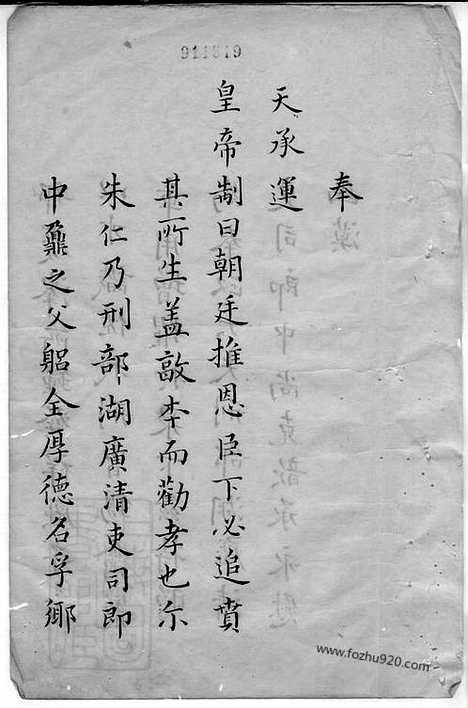 911619
奉
天承運
皇帝制曰朝廷推恩臣下必追賁
其所生蓋敦本而勸孝也尓
朱仁乃刑部湖廣清吏司郎
中鼐之父躳全厚德名孚鄉
www.fozhu920.com